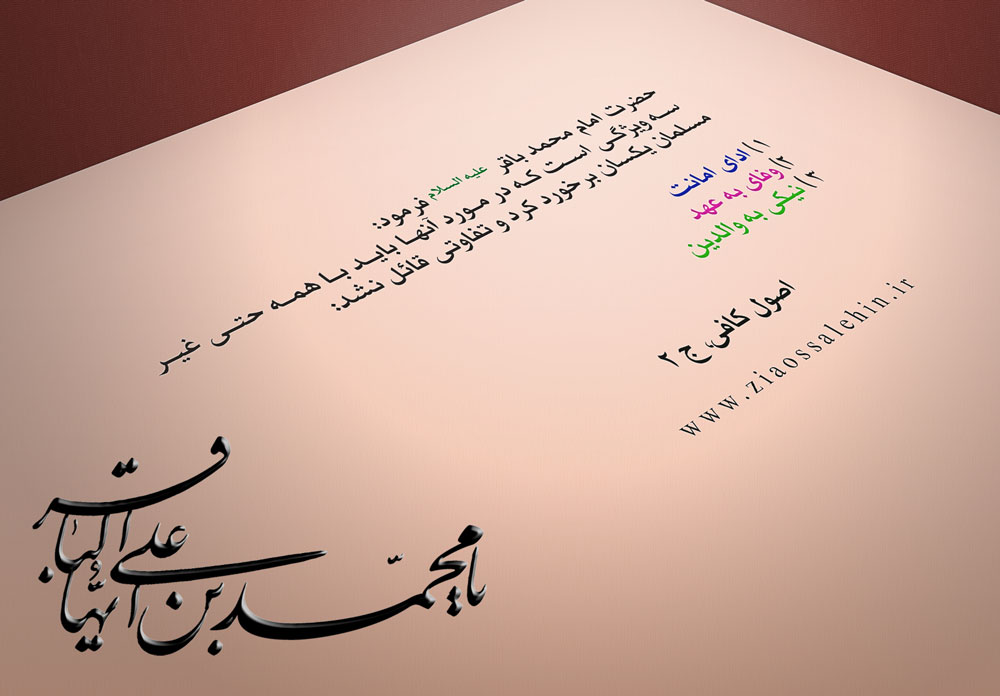 حضرت امام محمد باقر علیه السلام فرمود:
سه ویژگی است که در مورد آنها باید با همه حتی غیر
مسلمان یکسان برخورد کرد و تفاوتی قائل نشد:
۱) ادای امانت
۲) وفای به عهد
۳) نیکی به والدین
اصول کافی، ج ۲
www.ziaossalehin.ir
یا محمّد بن علی ایّها الباقر